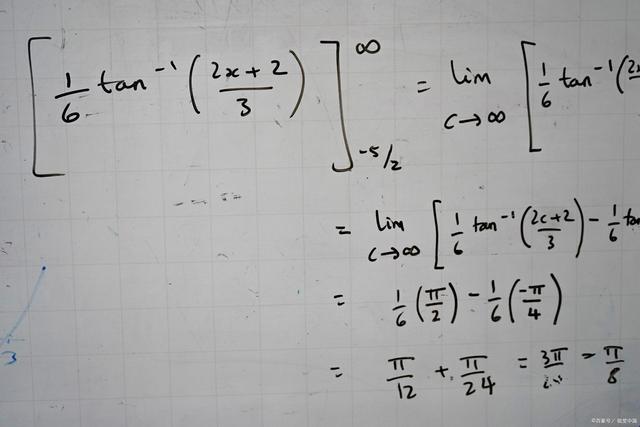 [1/6 tan⁻¹((2x+2)/3)]^∞_{-5/2} = lim_{c→∞} [1/6 tan⁻¹(
= lim_{c→∞} [1/6 tan⁻¹((2c+2)/3) - 1/6
= 1/6(π/2) - 1/6(-π/4)
= π/12 + π/24 = 3π/ = π/8
©百家号/